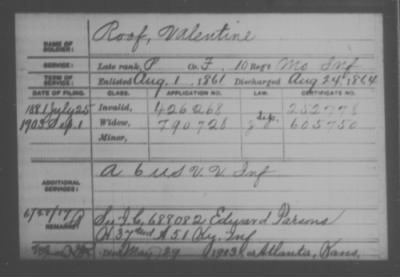 NAME OF SOLDIER: Roof, Valentine
SERVICE: Late rank, P Co. F, 10 Reg't Mo Inf
TERM OF SERVICE: Enlisted Aug. 1, 1861 Discharged Aug 24, 1864
DATE OF FILING. CLASS. APPLICATION NO. LAW. CERTIFICATE NO.
1881 July 25 Invalid, 426268 252778
1903 Sep. 1 Widow, 790728 605750
Minor,
ADDITIONAL SERVICES: A 6 US V. V. Inf
REMARKS: Sy I. C. 688082 Edward Parsons
H 37 and A 51 Ky. Inf
Died May 29 1903, at Atlanta, Kans.